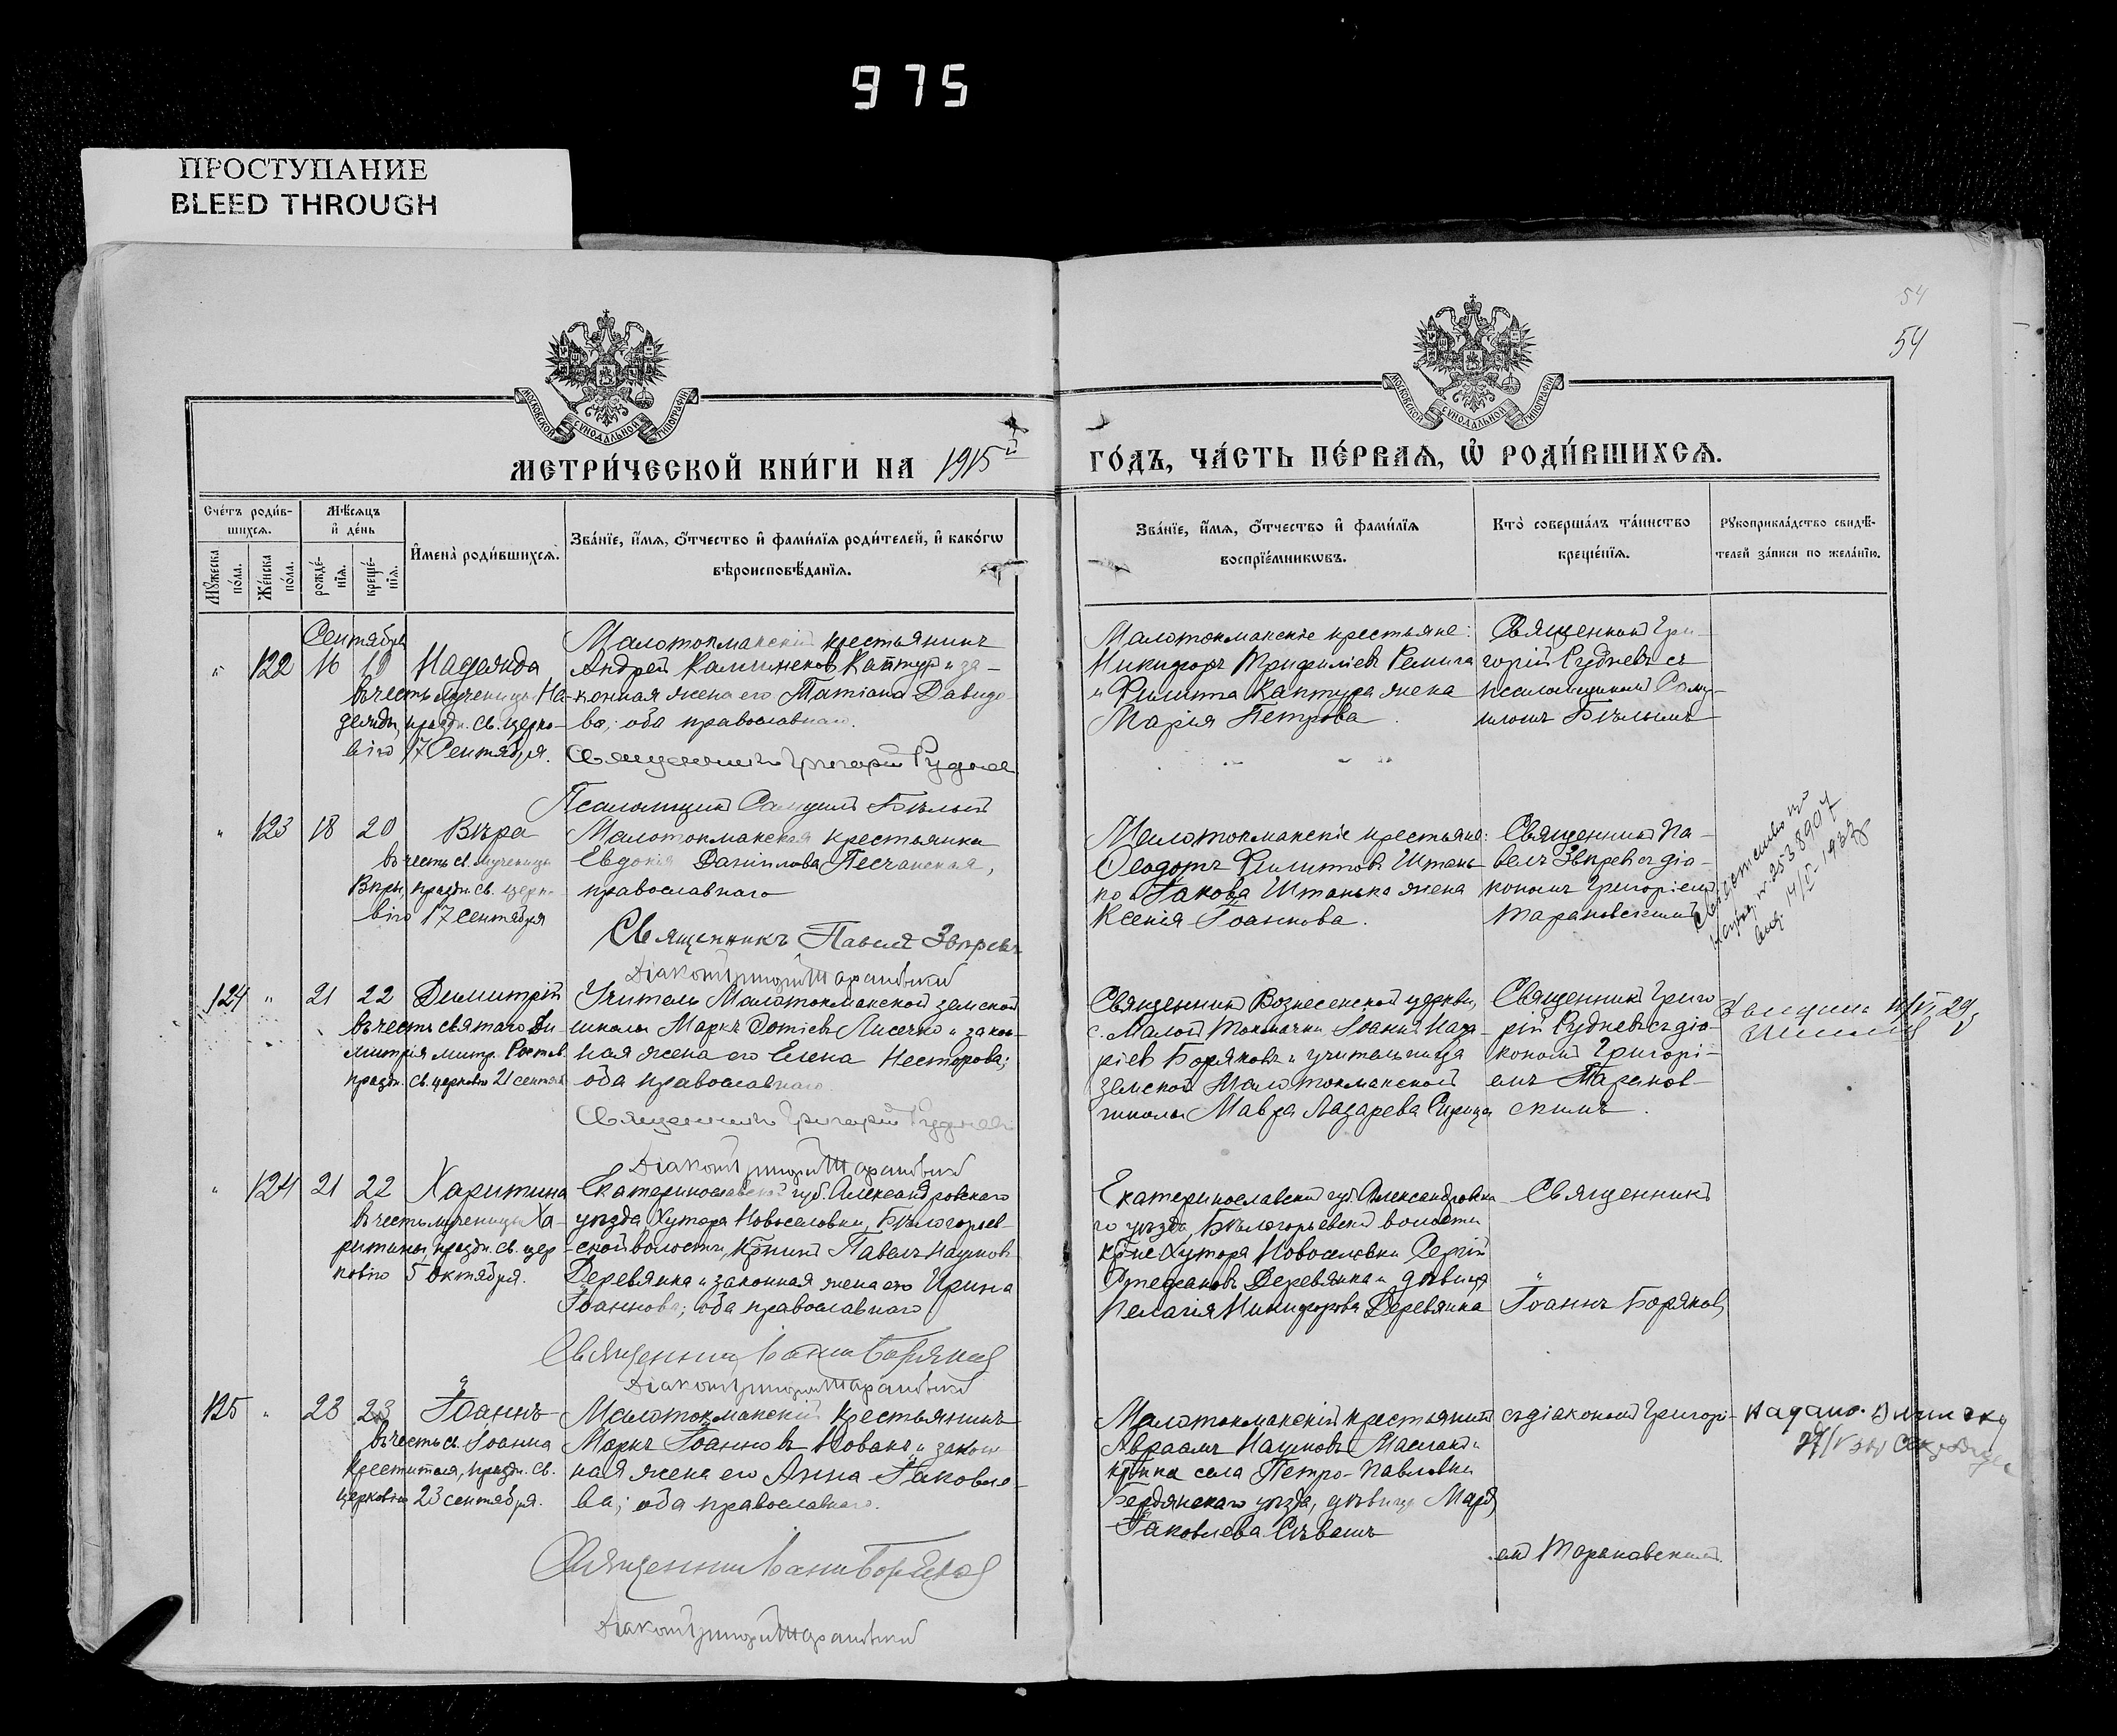 975
ПРОСТУПАНИЕ
BLEED THROUGH
54
54
МОСКОВСКОЙ СѴНОДАЛЬНОЙ ТИПОГРАФІИ
МОСКОВСКОЙ СѴНОДАЛЬНОЙ ТИПОГРАФІИ
МЕТРИ́ЧЕСКОЙ КНИ́ГИ НА 1915й
ГО́ДЪ, ЧА́СТЬ ПЕ́РВАѦ, Ѡ҆ РОДИ́ВШИХСѦ.
Сче́тъ роди́в-
шихсѧ.
Мꙋ́жеска
по́ла.
Же́нска
по́ла.
Мѣ́сѧцъ
и҆ де́нь
рожде́-
нїѧ.
креще́-
нїѧ.
И҆мена̀ роди́вшихсѧ.
Зва́нїе, и҆́мѧ, ѻ҆́тчество и҆ фами́лїѧ роди́телей, и҆ како́гѡ
вѣроисповѣ́данїѧ.
Зва́нїе, и҆́мѧ, ѻ҆́тчество и҆ фами́лїѧ
воспрїе́мникѡвъ.
Кто̀ соверша́лъ та́инство
креще́нїѧ.
Рꙋкоприкла́дство свидѣ́-
телей за́писи по жела́нїю.
Сентябрь
" 122 16 18 Надежда
въ честь мученицы На-
дежды, праздн. св. церко-
вію 17 Сентября.
Малотокмакскій крестьянинъ
Андрей Каптуръ и за-
конная жена его Татіана Давидо-
ва; оба православнаго.
Священникъ Григорій Руднев
Псаломщикъ Самуилъ Бѣлый
Малотокмакскіе крестьяне:
Никифоръ Трифиліевъ Ремига
и Филиппа Каптура жена
Марія Петрова
Священникъ Гри-
горій Рудневъ съ
псаломщикомъ Саму-
иломъ Бѣлымъ
" 123 18 20 Вѣра
въ честь св. мученицы
Вѣры, праздн. св. церк-
вію 17 сентября
Малотокмакская крестьянка
Евдокія Даніилова Песчанская,
православнаго
Священникъ Павелъ Звѣревъ
Діаконъ Григорій Тарановскій
Малотокмакскіе крестьяне:
Ѳеодоръ Филипповъ Штань-
ко и Іакова Штанько жена
Ксенія Іоаннова.
Священникъ Па-
велъ Звѣревъ съ діа-
кономъ Григоріемъ
Тарановскимъ
124 " 21 22 Димитрій
въ честь святаго Ди-
митрія митр. Ростов.
праздн. св. церковію 21 сентяб.
Учитель Малотокмакской земской
школы Маркъ Фотіевъ Лисечко и закон-
ная жена его Елена Несторова;
оба православнаго.
Священникъ Григорій Руднев
Діаконъ Григорій Тарановскій
Священникъ Вознесенской церкви,
с. Малой Токмачки Іоаннъ Наза-
ріев Боряковъ и учительница
земской Малотокмакской
школы Мавра Лазарева
Священникъ Григо-
рій Рудневъ съ діа-
кономъ Григорі-
емъ Таранов-
скимъ.
" 124 21 22 Харитина
въ честь мученицы Ха-
ритины, праздн. св. цер-
ковію 5 октября.
Екатеринославской губ. Александровскаго
уѣзда Хутора Новоселовки, Бѣлогорьев-
ской волости, кр-нинъ Павелъ Наумовъ
Деревянка и законная жена его Ирина
Іоаннова; оба православнаго
Священникъ Іоаннъ Боряковъ
Діаконъ Григорій Тарановскій
Екатеринославской губ. Александровска-
го уѣзда, Бѣлогорьевской волости
кр-не Хутора Новоселовки Сергій
Стефановъ Деревянка и дѣвица
Пелагія Никифорова Деревянка
Священникъ
"
Іоаннъ Боряковъ
125 " 23 23 Іоаннъ
въ честь св. Іоанна
Крестителя, праздн. св.
церковію 23 сентября.
Малотокмакскій крестьянинъ
Маркъ Іоанновъ Новакъ и закон-
ная жена его Анна Іаковле-
ва; оба православнаго.
Священникъ Іоаннъ Боряковъ
Діаконъ Григорій Тарановскій
Малотокмакскій крестьянинъ
Авраамъ Наумовъ
кр-нка села Петро-Павловки
Бердянскаго уѣзда, дѣвица
Іаковлева
съ діакономъ Григорі-
емъ Тарановскимъ.